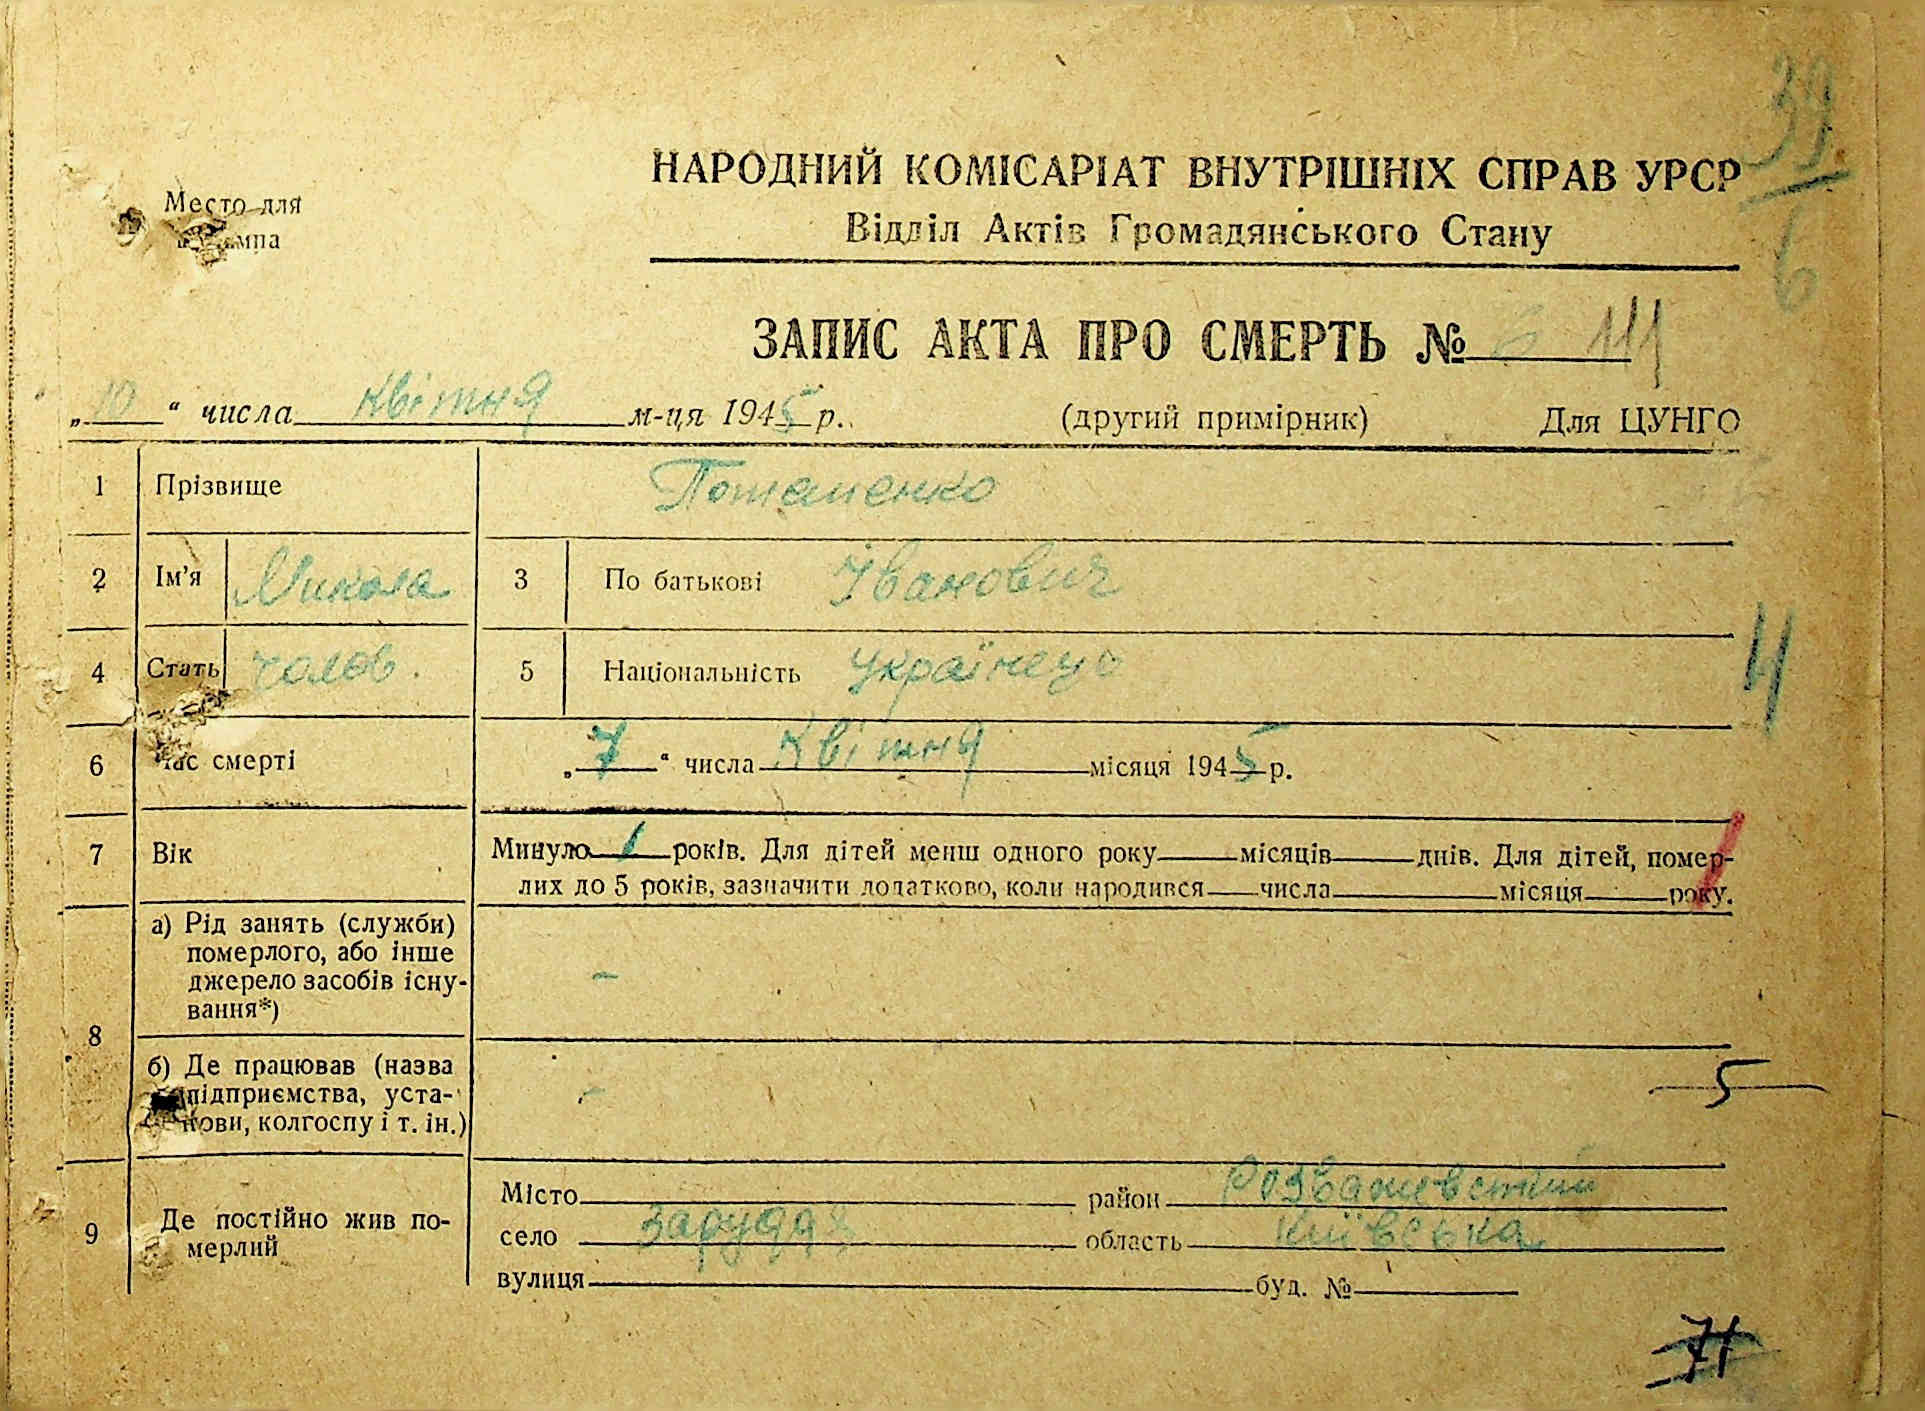 39
6
Место для
НАРОДНИЙ КОМІСАРІАТ ВНУТРІШНІХ СПРАВ УРСР
Відділ Актів Громадянського Стану
ЗАПИС АКТА ПРО СМЕРТЬ № 6
„10“ числа квітня м-ця 1945 р.
(другий примірник) Для ЦУНГО
1 Прізвище Потапенко
2 Ім’я Микола 3 По батькові Іванович
4 Стать чолов. 5 Національність Українець
6 Час смерті „7“ числа квітня місяця 1945 р.
7 Вік Минуло 1 років. Для дітей менш одного року місяців днів. Для дітей, помер-
лих до 5 років, зазначити додатково, коли народився числа місяця року.
8 а) Рід занять (служби)
померлого, або інше
джерело засобів існу-
вання*)
-
б) Де працював (назва
підприємства, уста-
нови, колгоспу і т. ін.)
-
5
9 Де постійно жив по-
мерлий
Місто район Розважевський
село Заруддя область Київська
вулиця буд. №
71